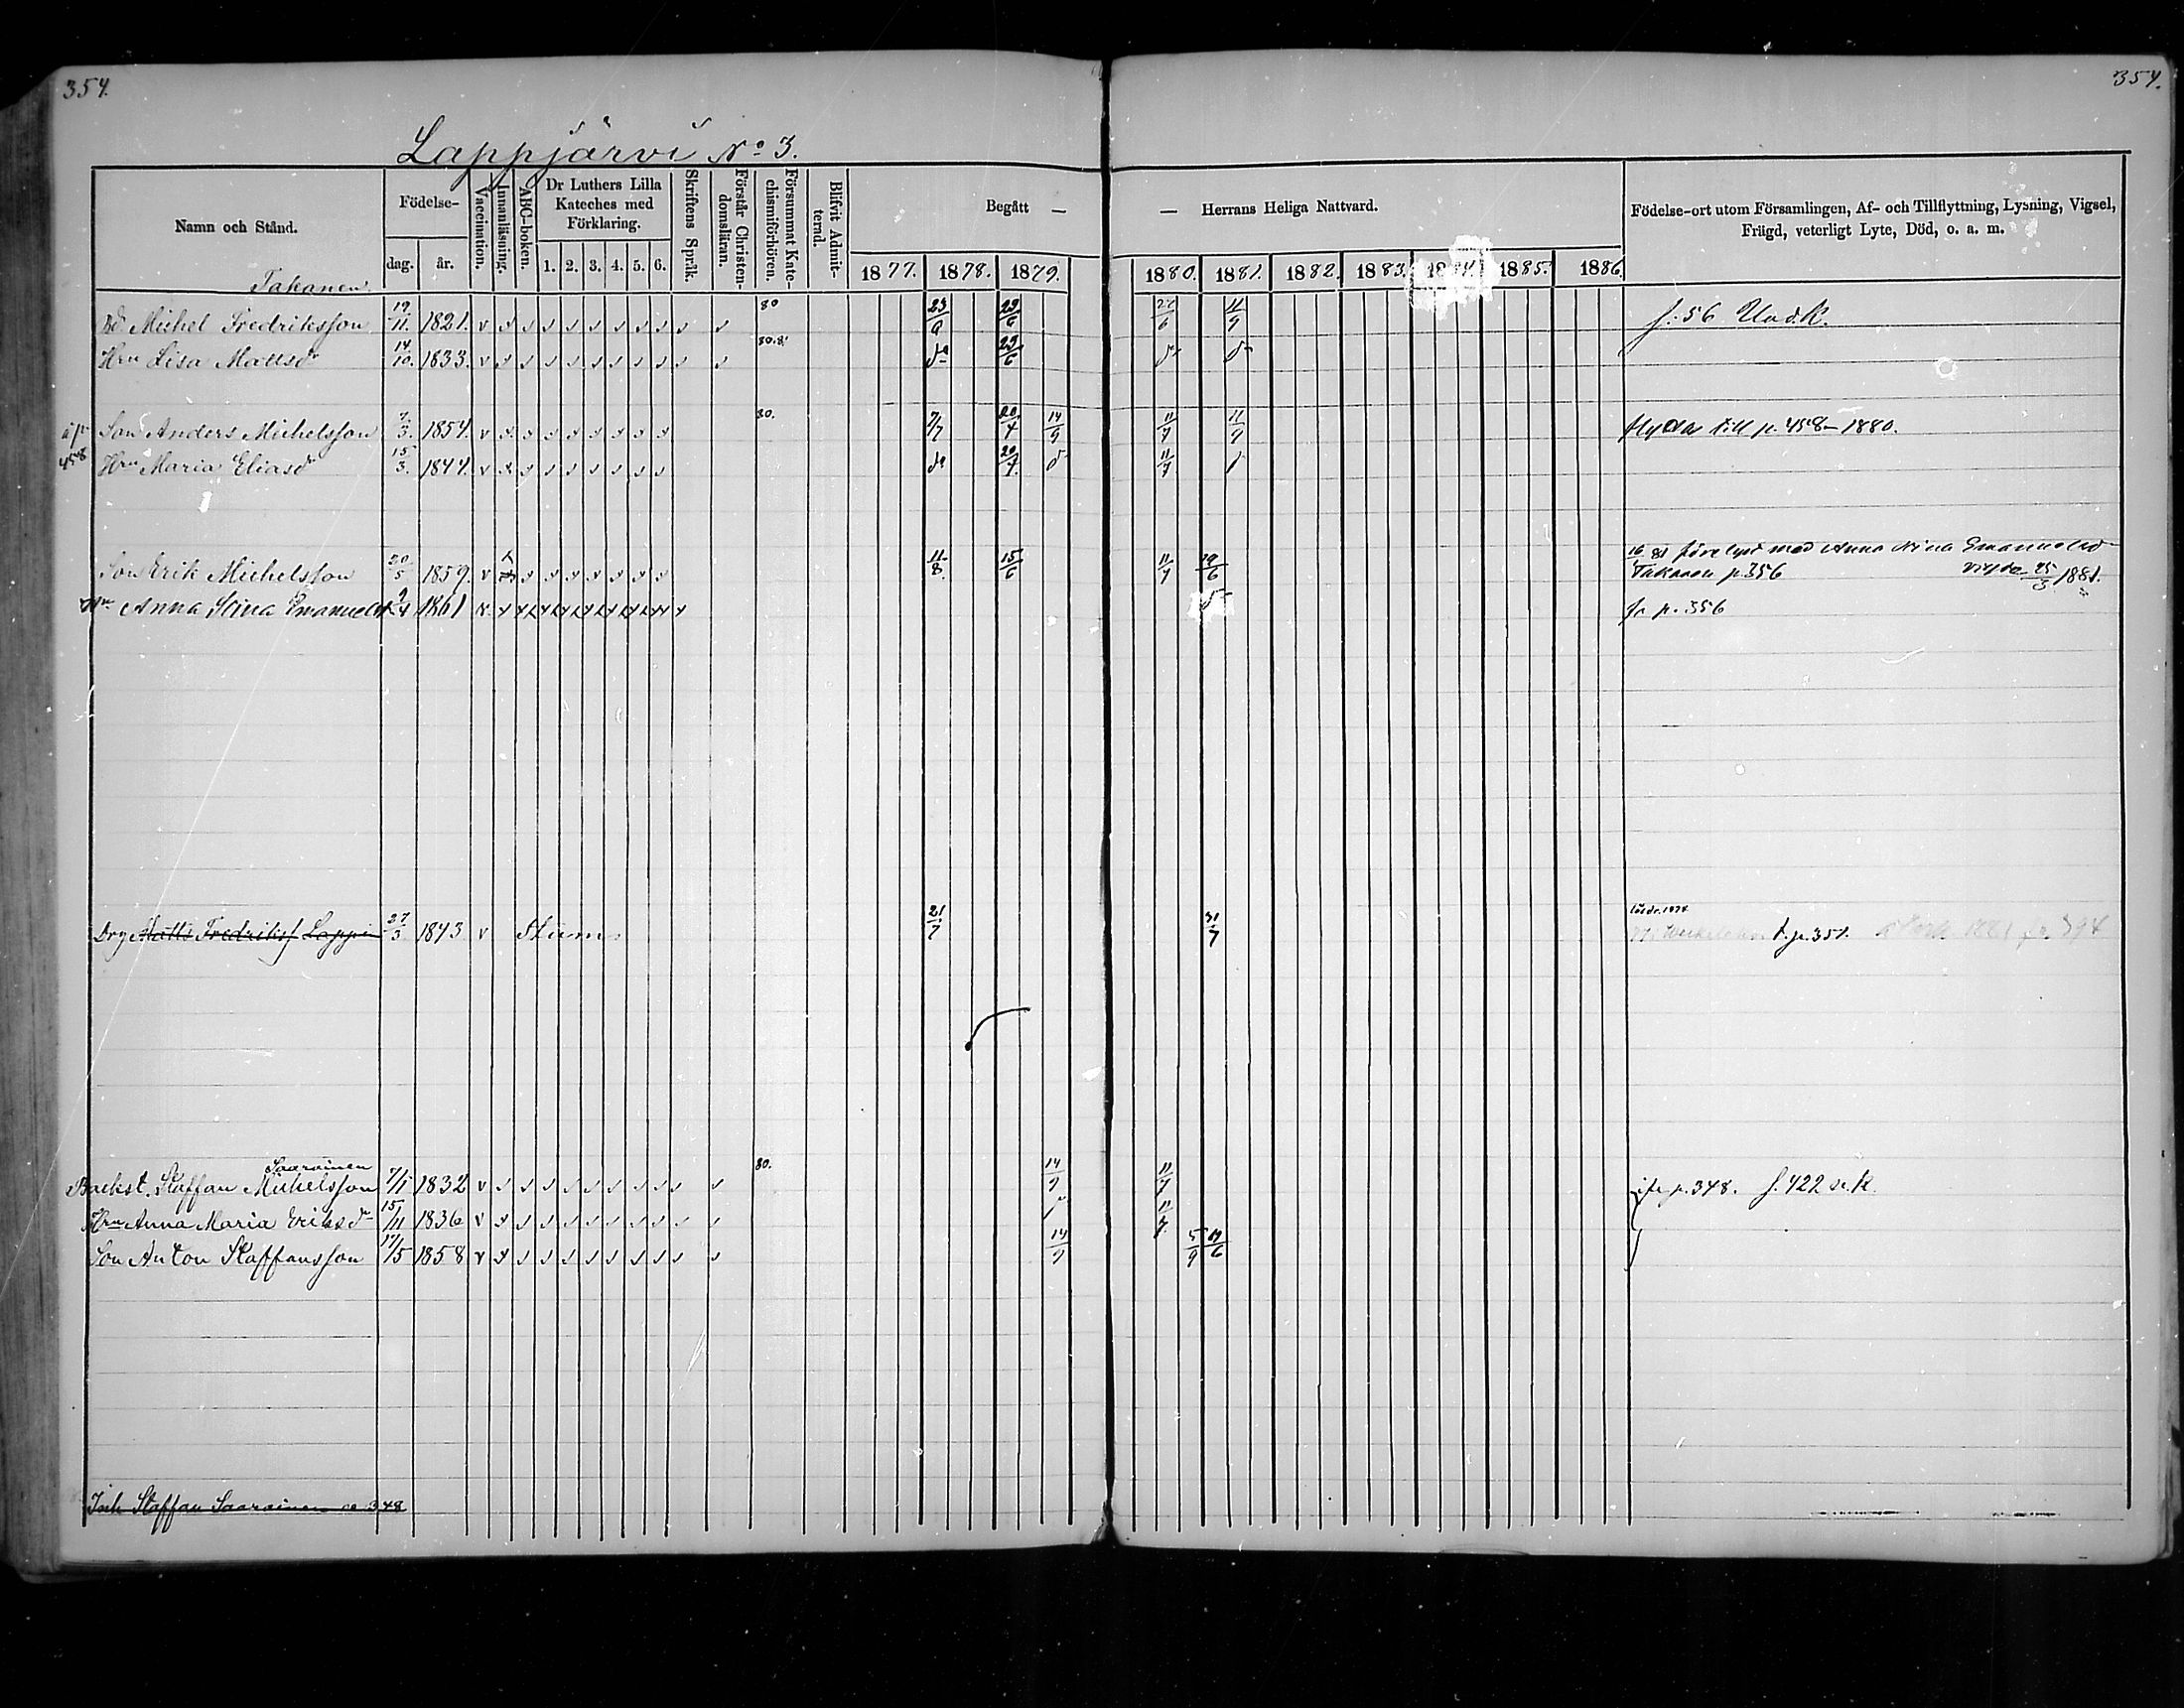 354.
354.
Lappjärvi No 3.
Namn och Stånd.
Födelse-
dag.
år.
Vaccination.
Innanläsning.
ABC-boken.
Dr Luthers Lilla
Kateches med
Förklaring.
1. 2. 3. 4. 5. 6.
Skriftens Språk.
Förstår Christen-
domslären.
Försummat Kate-
chismiförhören.
Blifvit Admit-
terad.
Begått —
— Herrans Heliga Nattvard.
1877. 1878. 1879.
1880. 1881. 1882. 1883. 1884. 1885. 1886.
Födelse-ort utom Församlingen, Af- och Tillflyttning, Lysning, Vigsel,
Frägd, veterligt Lyte, Död, o. a. m.
Takanen
Bd Michel Fredriksson 19/11. 1821. v 80 23/6 29/6 11/9 f. 56
Hru Lisa Mattsdr 14/10. 1833. v do 29/6
Son Anders Michelsson 7/3. 1854. v 80. 7/7 20/7 14/9 11/7 11/9 flyttat till p. 458 – 1880.
458 Hru Maria Eliasdr 15/3. 1844. v do 20/7 11/7
Son Erik Michelsson 20/5 1859. v 11/8 15/6 11/7 19/6 16/1 81 förelyst med Anna Stina Emanuelsdr
Takanen p. 356 vigde 25/3 1881.
Hru Anna Stina Emanuelsdr 1861 fr p. 356
Drg Matts Fredrikss Lappi 27/3 1843 v Stum 21/7 31/7
t. p. 351.
Saarainen
Backst. Staffan Michelsson 7/1 1832 v 80. 14/9 11/7 ifr p. 348. f. 422
Hru Anna Maria Eriksdr 15/11 1836 v 11/7
Son Anton Staffansson 17/5 1858 v 14/9 5/9 19/6
Inh Staffan Saarainen 348